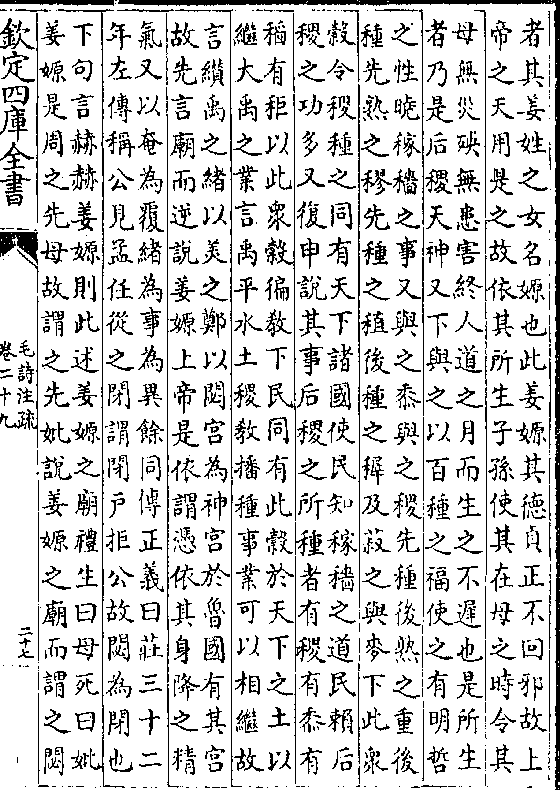 者其姜姓之女名嫄也此姜嫄其德貞正不回邪故上
帝之天用是之故依其所生子孫使其在母之時令其
母無災殃無患害終人道之月而生之不遲也是所生
者乃是后稷天神又下與之以百種之福使之有明哲
之性曉稼穡之事又與之黍與之稷先種後熟之重後
種先熟之穋先種之稙後種之穉及菽之與麥下此衆
穀令稷種之同有天下諸國使民知稼穡之道民賴后
稷之功多又復申說其事后稷之所種者有稷有黍有
稻有秬以此衆穀徧敎下民同有此穀於天下之土以
繼大禹之業言禹平水土稷敎播種事業可以相繼故
言纘禹之緒以美之鄭以閟宮為神宮於魯國有其宮
故先言廟而逆說姜嫄上帝是依謂憑依其身降之精
氣又以奄為覆緒為事為異餘同傳正義曰莊三十二
年左傳稱公見孟任從之閉謂閉戶拒公故閟為閉也
下句言赫赫姜嫄則此述姜嫄之廟禮生曰母死曰妣
姜嫄是周之先母故謂之先妣說姜嫄之廟而謂之閟
欽定四庫全書
毛詩注疏
卷二十九
二十七